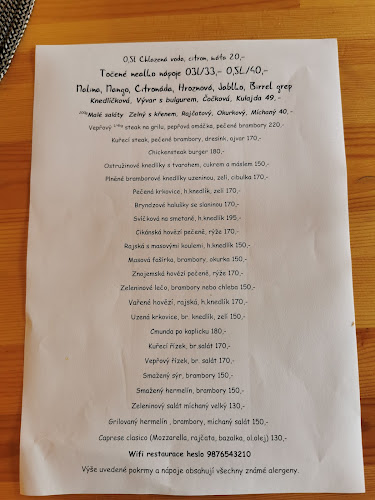 0,5L Chlazená voda, citron, máta 20,-
Točené nealko nápoje 03l/33,- 0,5L/40,-
Malina, Mango, Citronáda, Hroznová, Jablko, Birrel grep
Knedlíčková, Vývar s bulgurem, Čočková, Kulajda 49,-
Malé saláty Zelný s křenem, Rajčatový, Okurkový, Míchaný 40,-
Vepřový steak na grilu, pepřová omáčka, pečené brambory 220,-
Kuřecí steak, pečené brambory, dresink, ajvar 170,-
Chickensteak burger 180,-
Ostružinové knedlíky s tvarohem, cukrem a máslem 150,-
Plněné bramborové knedlíky uzeninou, zelí, cibulka 170,-
Pečená krkovice, h.knedlík, zelí 170,-
Bryndzové halušky se slaninou 170,-
Svíčková na smetaně, h.knedlík 195,-
Cikánská hovězí pečeně, rýže 170,-
Rajská s masovými koulemi, h.knedlík 150,-
Masová fašírka, brambory, okurka 150,-
Znojemská hovězí pečeně, rýže 170,-
Zeleninové lečo, brambory nebo chleba 150,-
Vařené hovězí, rajská, h.knedlík 170,-
Uzená krkovice, br. knedlík, zelí 150,-
Cmunda po kaplicku 180,-
Kuřecí řízek, br salát 170,-
Vepřový řízek, br. salát 170,-
Smažený sýr, brambory 150,-
Smažený hermelín, brambory 150,-
Zeleninový salát míchaný velký 130,-
Grilovaný hermelín , brambory, míchaný salát 150,-
Caprese clasico (Mozzarella, rajčata, bazalka, ol.olej) 130,-
Wifi restaurace heslo 9876543210
Výše uvedené pokrmy a nápoje obsahují všechny známé alergeny.